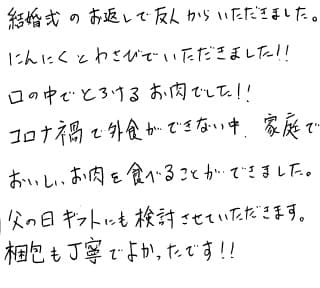 結婚式のお返しで友人からいただきました。
にんにくとわさびでいただきました!!
口の中でとろけるお肉でした!!
コロナ禍で外食ができない中、家庭で
おいしいお肉を食べることができました。
父の日ギフトにも検討させていただきます。
梱包も丁寧でよかったです!!